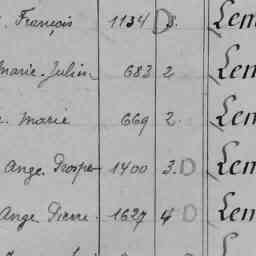 . François 1134 D 8. Lem
Marie. Julien 683 2 Lem
. Marie 669 2. Lem
Ange. Prosper 1400 3. D Lem
Ange. Pierre. 1627 4 D Lem